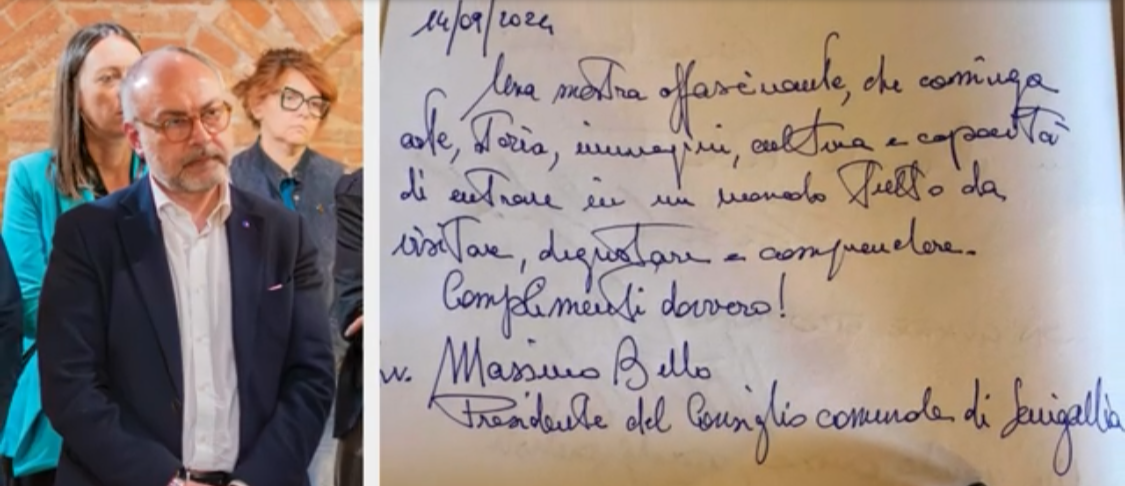 14/09/2024
Una mostra affascinante, che coniuga
arte, storia, immagini, cultura e capacità
di entrare in un mondo tutto da
visitare, degustare e comprendere.
Complimenti davvero!
Massimo Bello
Presidente del Consiglio comunale di Senigallia